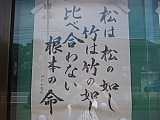 松は松の如し
竹は竹の如し
比べ合わない
根本の命